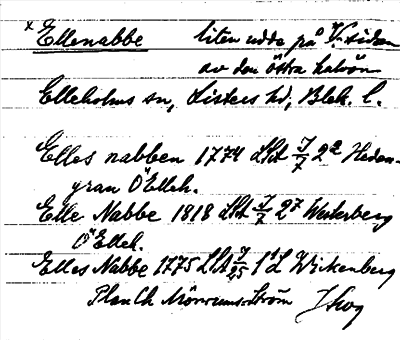 x Ellenabbe liten udde på V. sidan
av den östra halvön
Elleholms sn, Listers hd, Blek. l.
Elles nabben 1774 LSA I/7 2a Heden-
gran ÖElleh.
Elle Nabbe 1818 LSA I/7 27 Westerberg
ÖElleh.
Elles Nabbe 1775 LSA I/25 1 1 L Wickenberg
Plan Ch Mörrums Ström